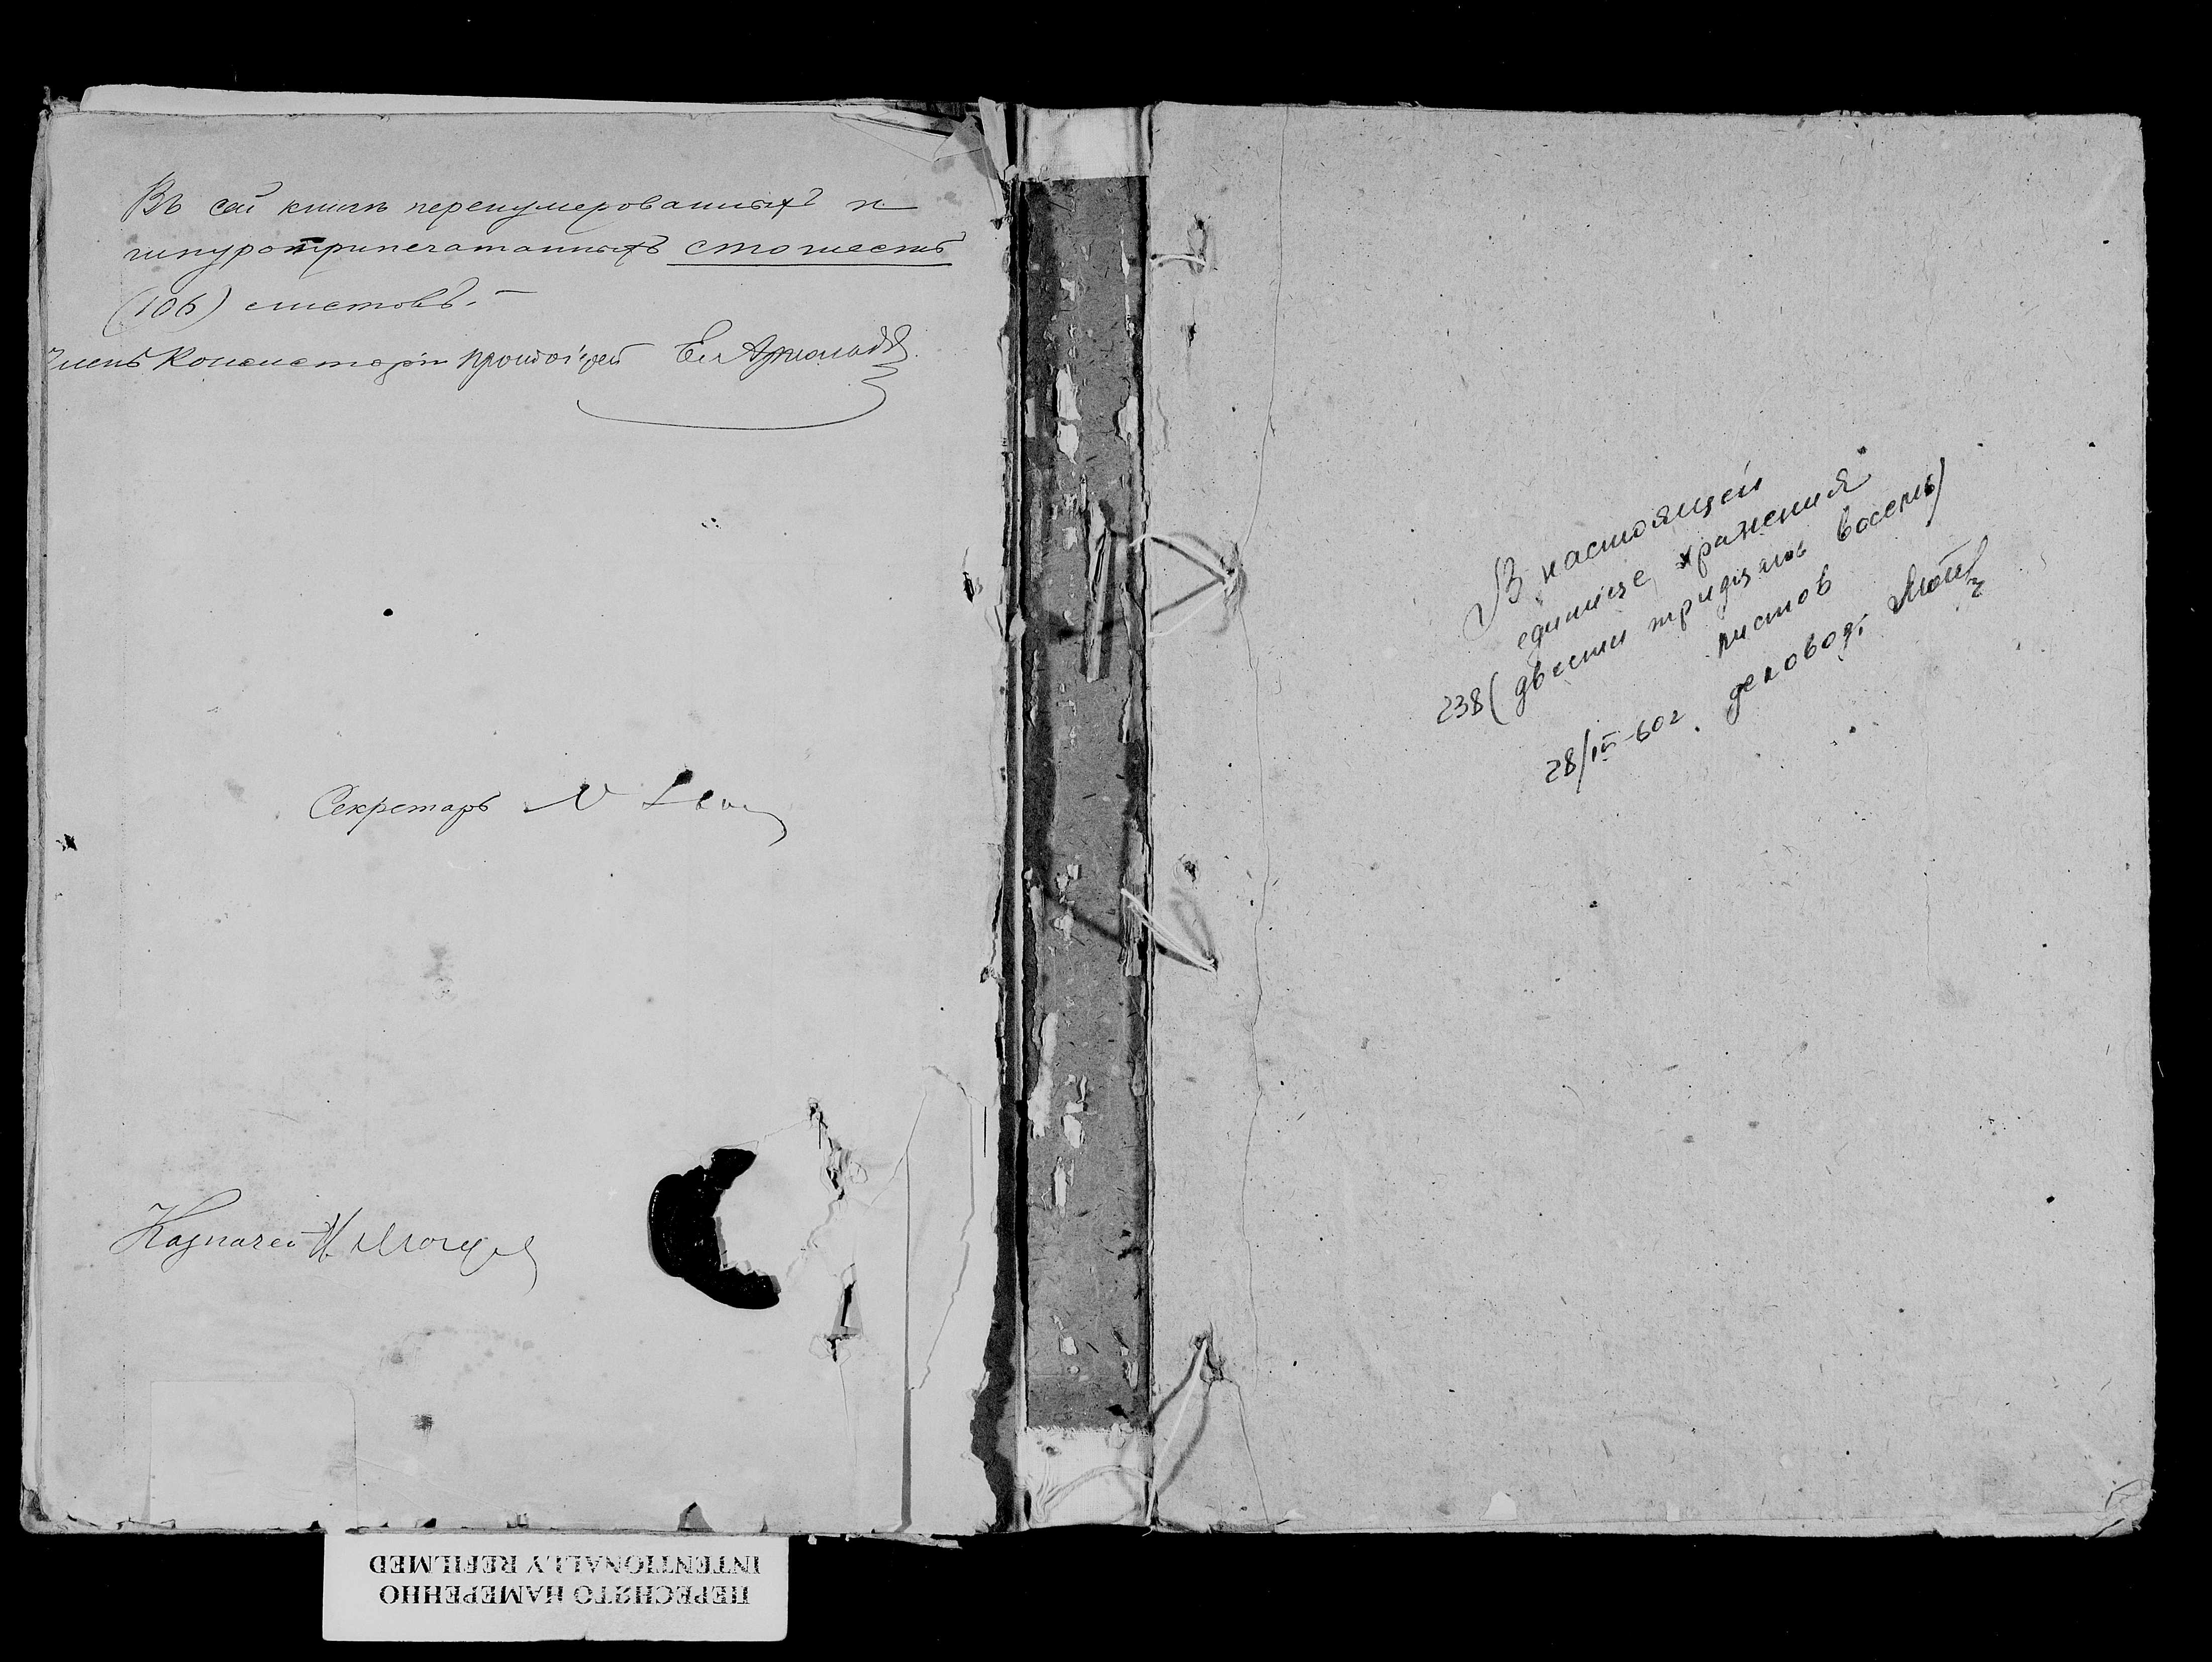 Въ сей книгѣ перенумерованныхъ и
шнуроприпечатанныхъ сто шесть
(106) листовъ.—
Членъ Консисторіи Протоіерей
Секретарь
Казначей
В настоящей
единице хранения
238 (двести тридцать восемь)
листов
28/IV-60г. деловод.
ПЕРЕСНЯТО НАМЕРЕННО
INTENTIONALLY REFILMED